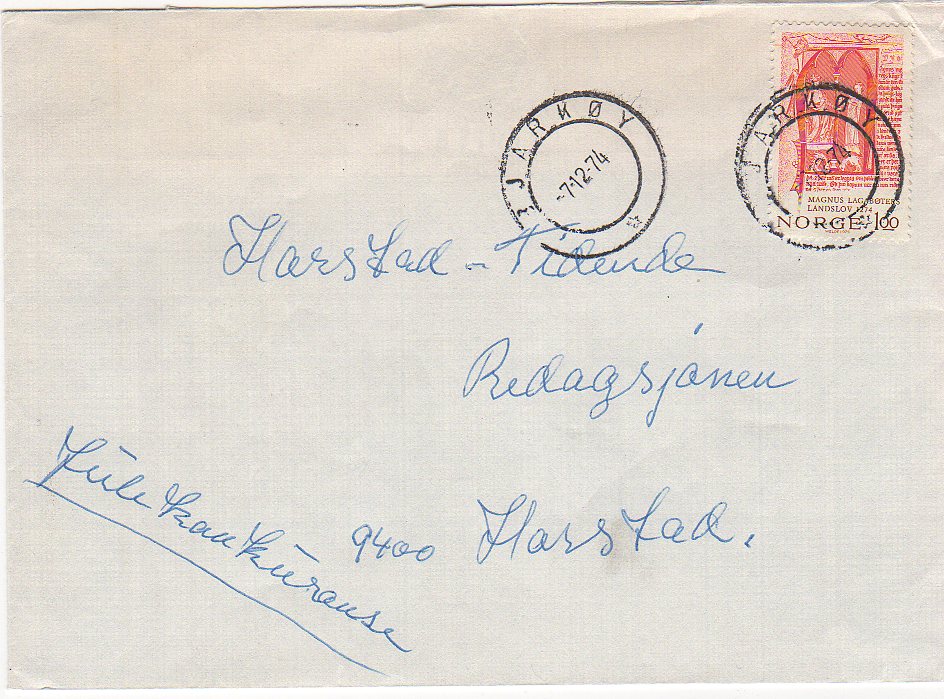 BJARKØY
-7.12.74
BJARKØY
74
MAGNUS LAGABØTERS
LANDSLOV 1274
NORGE 1.00
Harstad - Tidende
Redagsjonen
9400 Harstad.
Jule kankuranse